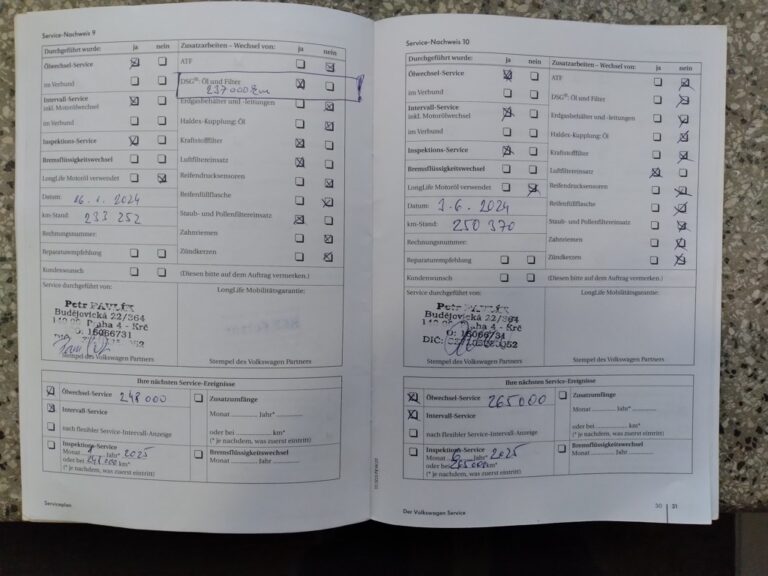 Service-Nachweis 9
Durchgeführt wurde: ja nein
Ölwechsel-Service
im Verbund
Intervall-Service
inkl. Motorölwechsel
im Verbund
Inspektions-Service
Bremsflüssigkeitswechsel
LongLife Motoröl verwendet
Datum: 16. 1. 2024
km-Stand: 233 252
Rechnungsnummer:
Reparaturempfehlung
Kundenwunsch
Zusatzarbeiten – Wechsel von: ja nein
ATF
DSG®: Öl und Filter
237000 km
Erdgasbehälter und -leitungen
Haldex-Kupplung: Öl
Kraftstofffilter
Luftfiltereinsatz
Reifendrucksensoren
Reifenfüllflasche
Staub- und Pollenfiltereinsatz
Zahnriemen
Zündkerzen
(Diesen bitte auf dem Auftrag vermerken.)
Service durchgeführt von:
Petr PAVLÍK
Budějovická 22/364
Praha 4 - Krč
Stempel des Volkswagen Partners
LongLife Mobilitätsgarantie:
Stempel des Volkswagen Partners
Ihre nächsten Service-Ereignisse
Ölwechsel-Service 248 000
Intervall-Service
nach flexibler Service-Intervall-Anzeige
Inspektions-Service
Monat Jahr* 2025
oder bei 248 000 km*
(* je nachdem, was zuerst eintritt)
Zusatzumfänge
Monat Jahr*
oder bei km*
(* je nachdem, was zuerst eintritt)
Bremsflüssigkeitswechsel
Monat Jahr
Serviceplan
Service-Nachweis 10
Durchgeführt wurde: ja nein
Ölwechsel-Service
im Verbund
Intervall-Service
inkl. Motorölwechsel
im Verbund
Inspektions-Service
Bremsflüssigkeitswechsel
LongLife Motoröl verwendet
Datum: 3. 6. 2024
km-Stand: 250 370
Rechnungsnummer:
Reparaturempfehlung
Kundenwunsch
Zusatzarbeiten – Wechsel von: ja nein
ATF
DSG®: Öl und Filter
Erdgasbehälter und -leitungen
Haldex-Kupplung: Öl
Kraftstofffilter
Luftfiltereinsatz
Reifendrucksensoren
Reifenfüllflasche
Staub- und Pollenfiltereinsatz
Zahnriemen
Zündkerzen
(Diesen bitte auf dem Auftrag vermerken.)
Service durchgeführt von:
Petr PAVLÍK
Budějovická 22/364
Praha 4 - Krč
DIČ:
Stempel des Volkswagen Partners
LongLife Mobilitätsgarantie:
Stempel des Volkswagen Partners
Ihre nächsten Service-Ereignisse
Ölwechsel-Service 265000
Intervall-Service
nach flexibler Service-Intervall-Anzeige
Inspektions-Service
Monat 6 Jahr* 2025
oder bei 265000 km*
(* je nachdem, was zuerst eintritt)
Zusatzumfänge
Monat Jahr*
oder bei km*
(* je nachdem, was zuerst eintritt)
Bremsflüssigkeitswechsel
Monat Jahr
Der Volkswagen Service
30 31